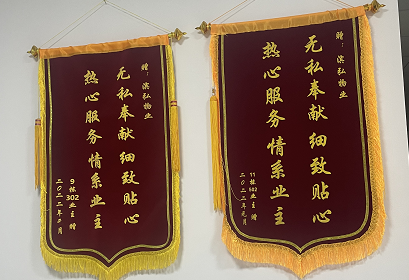 赠：滨弘物业
无私奉献细致贴心
热心服务情系业主
9栋302业主 赠
二〇二二年元月
赠：滨弘物业
无私奉献细致贴心
热心服务情系业主
11栋502业主 赠
二〇二二年元月